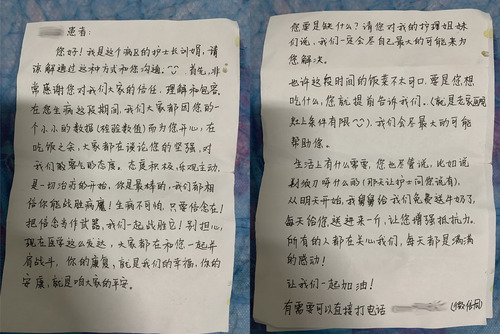 患者：
您好！我是这个病区的护士长刘娟，请
谅解通过这种方式和您沟通。首先，非
常感谢您对我们大家的信任，理解和包容，
在您生病这段期间，我们大家都因您的一
个小小的数据（经验数值）而为您开心，在
吃饭之余，大家都在谈论您的坚强，对
我们 态度。态度积极，乐观主动，
是一切治疗的开始，你是最棒的，我们都相
信你能战胜病魔！生病不可怕，只要信念在！
把信念当作武器，我们一起战胜它！别担心，
现在医学这么发达，大家都在和您一起并
肩战斗，你的康复，就是我们的幸福，你的
安康，就是咱大家的平安。
您要是缺什么？请您对我的护理姐妹
们说，我们一定会尽自己最大的可能来为
您解决。
也许这段时间的饭菜不太可口，要是您想
吃什么，您就提前告诉我们，（就是老家
灶上条件有限），我们会尽最大的可能
帮助您。
生活上有什么需要，您也尽管说，比如说
剃须刀呀什么的（那天让护士问您说有），
从明天开始，我舅舅给我们免费送牛奶了，
每天给您送进来一斤，让您增强抵抗力。
所有的人都在关心我们，每天都是满满
的感动！
让我们一起加油！
有需要可以直接打电话 （微信同）